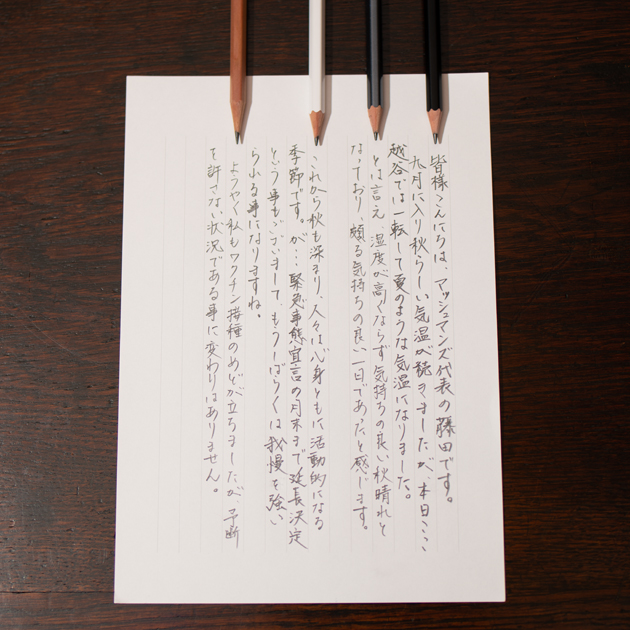 皆様こんにちは、マッシュマンズ代表の藤田です。
九月に入り秋らしい気温が続きましたが、本日ここ
越谷では一転して夏のような気温になりました。
とは言え、湿度が高くならず気持ちの良い秋晴れと
なっており、頗る気持ちの良い一日であったと感じます。
これから秋も深まり、人々は心身ともに活動的になる
季節です。が…緊急事態宣言の月末まで延長決定
という事もございまして、もうしばらくは我慢を強い
られる事になりますね。
ようやく私もワクチン接種のめどが立ちましたが、予断
を許さない状況である事に変わりはありません。